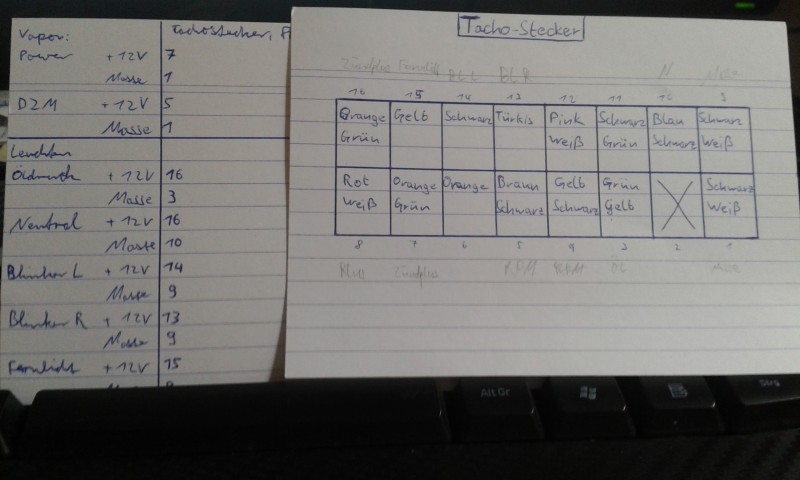 Vapor:
Tachostecker, P
Power + 12V 7
Masse 1
DZM + 12V 5
Masse 1
Leuchten
Öldruck + 12V 16
Masse 3
Neutral + 12V 16
Masse 10
Blinker L + 12V 14
Masse 9
Blinker R + 12V 13
Masse 9
Fernlicht + 12V 15
Masse 9
Tacho-Stecker
Zündplus Fernlicht BLL BLR N Masse
16 15 14 13 12 11 10 9
Orange Gelb Schwarz Türkis Pink Schwarz Blau Schwarz
Grün Weiß Grün Schwarz Weiß
Rot Orange Orange Braun Gelb Grün Schwarz
Weiß Grün Schwarz Schwarz Gelb Weiß
8 7 6 5 4 3 2 1
Zündplus RPM Öl Masse
Alt Gr
Strg